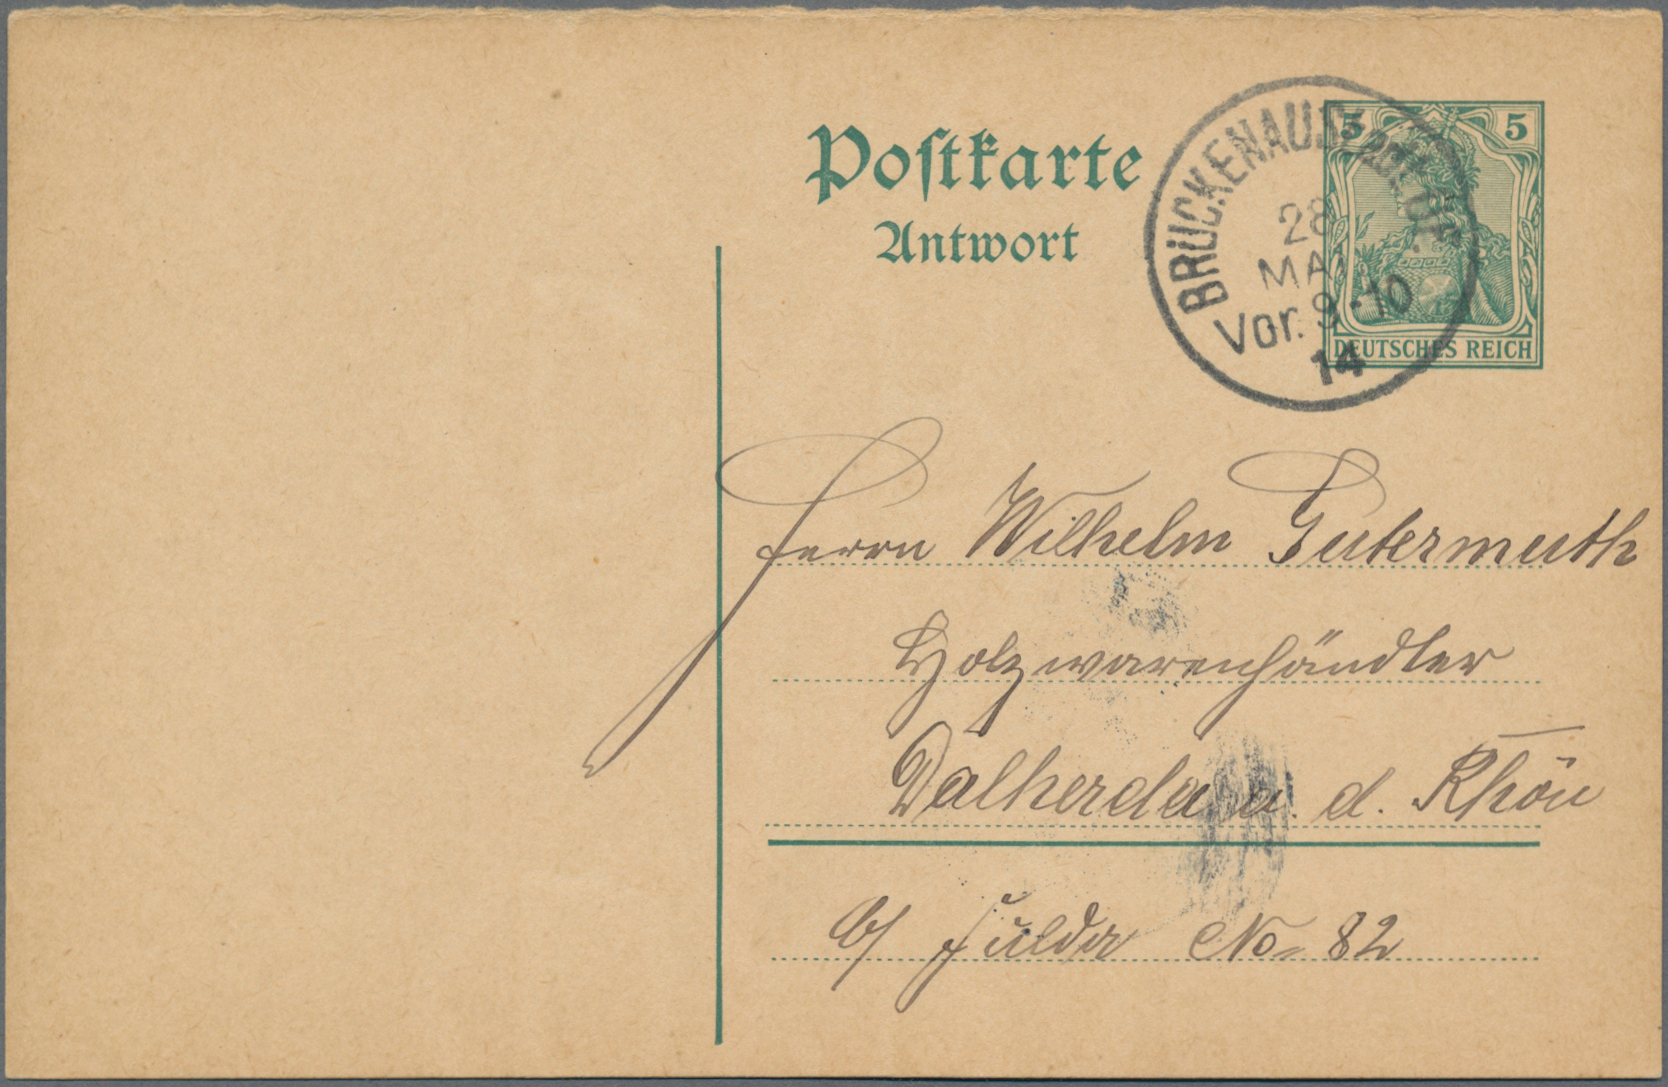 Postkarte
Antwort
BRÜCKENAU
28
MAI
Vor. 9-10
14
5 5
DEUTSCHES REICH
Herrn Wilhelm Gutermuth
Holzwarenhändler
Dalherda a. d. Rhön
b/ Fulda No 82